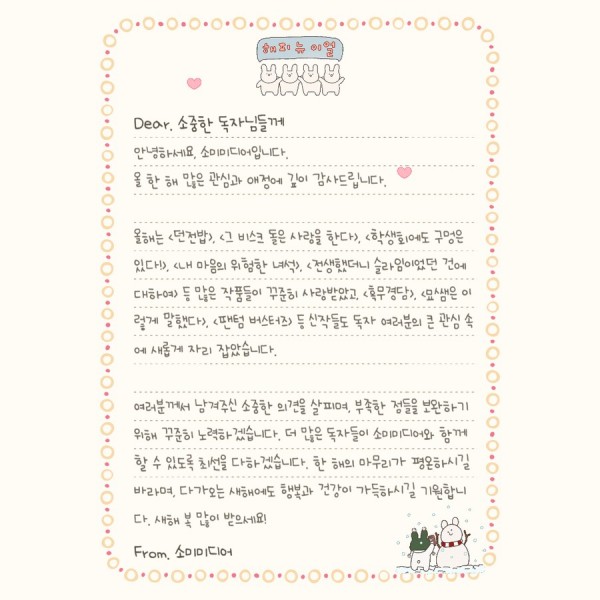 해피 뉴 이얼
Dear. 소중한 독자님들께
안녕하세요, 소미미디어입니다.
올 한 해 많은 관심과 애정에 깊이 감사드립니다.
올해는 <던전밥>, <그 비스크 돌은 사랑을 한다>, <학생회에도 구멍은
있다!>, <내 마음의 위험한 녀석>, <전생했더니 슬라임이었던 건에
대하여> 등 많은 작품들이 꾸준히 사랑받았고, <흑무경담>, <묘쌤은 이
렇게 말했다>, <팬텀 버스터즈> 등 신작들도 독자 여러분의 큰 관심 속
에 새롭게 자리 잡았습니다.
여러분께서 남겨주신 소중한 의견을 살피며, 부족한 점들을 보완하기
위해 꾸준히 노력하겠습니다. 더 많은 독자들이 소미미디어와 함께
할 수 있도록 최선을 다하겠습니다. 한 해의 마무리가 평온하시길
바라며, 다가오는 새해에도 행복과 건강이 가득하시길 기원합니
다. 새해 복 많이 받으세요!
From. 소미미디어